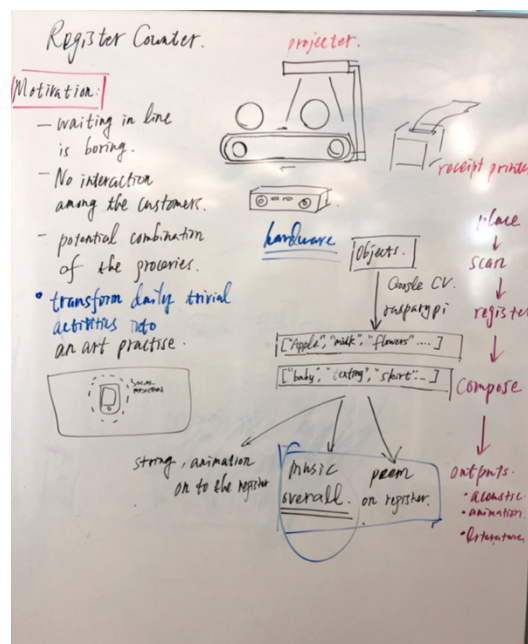 Register Counter.
projector.
Motivation:
– waiting in line
is boring.
– No interaction
among the customers.
– potential combination
of the groceries.
• transform daily trivial
activities into
an art practise.
SOCIAL
receipt printer
hardware
Objects.
Google CV.
rasparypi
["Apple", "milk", "flowers" .... ]
["baby", "texting", "skirt" ... ]
string, animation
on to the register
music
overall.
poem
on register.
place
scan
register
compose
outputs.
• acoustic.
• animation.
• literature.